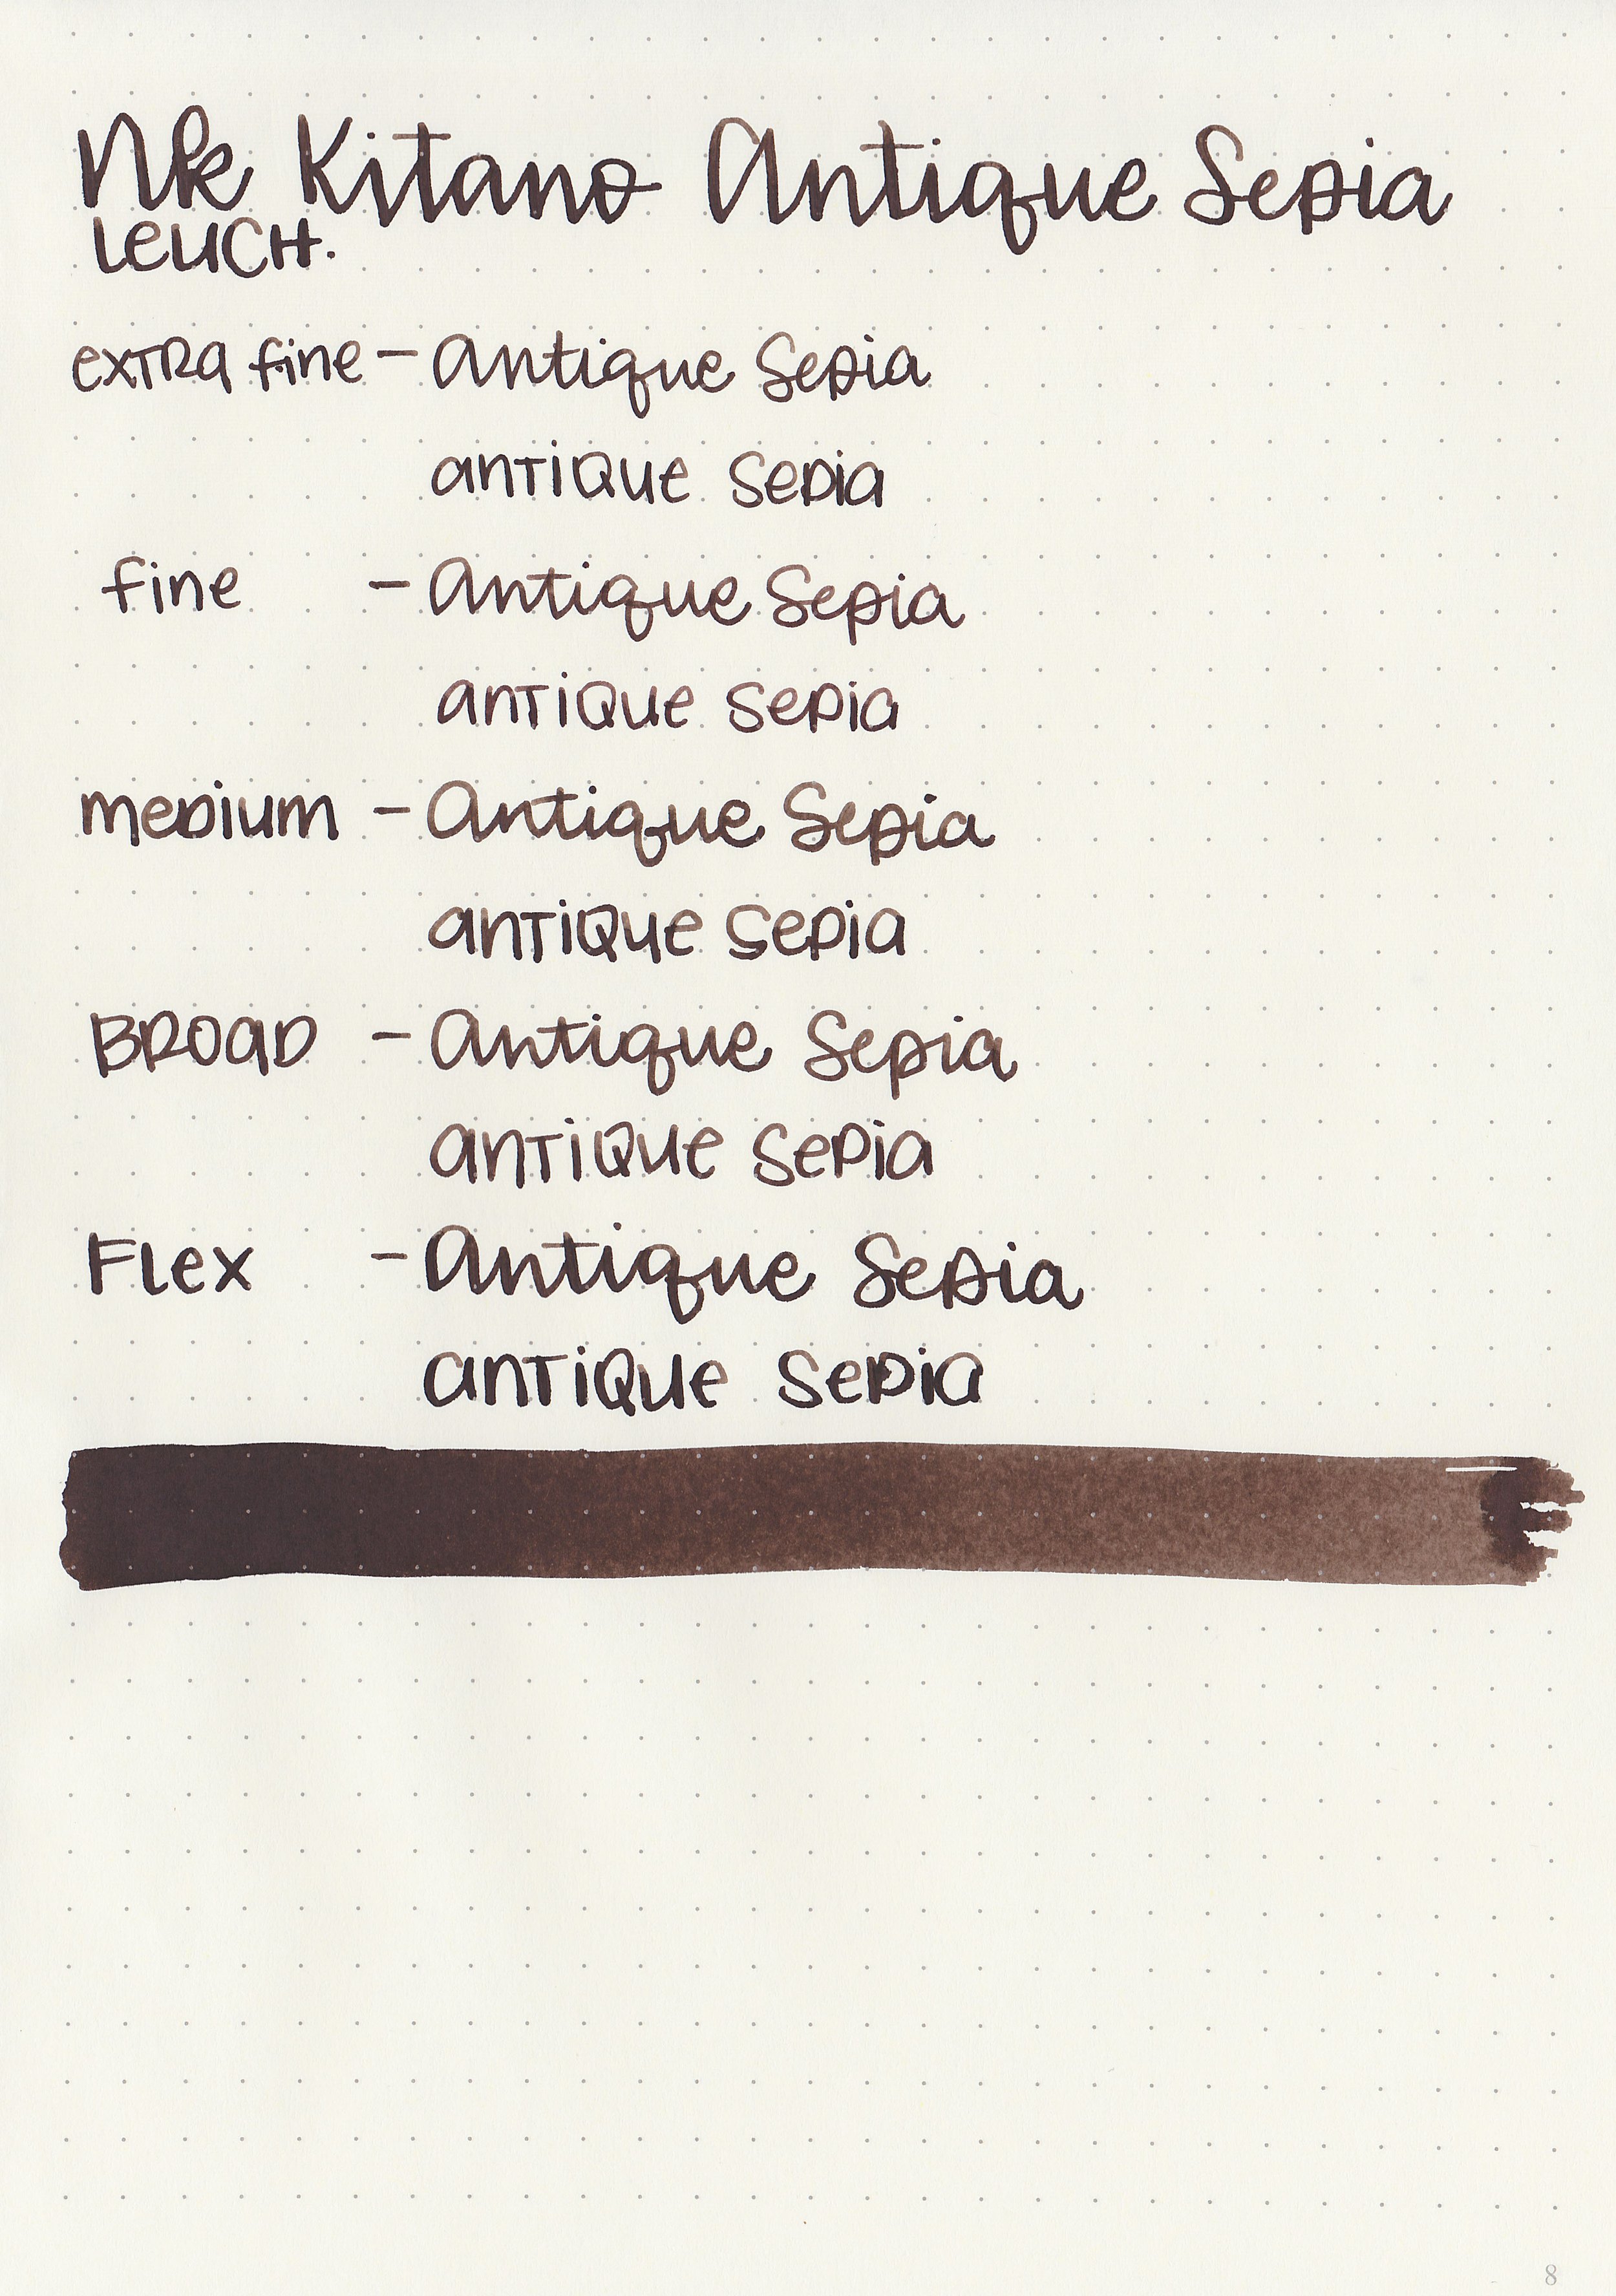 NK Kitano Antique Sepia
Leuch.
extra fine - Antique Sepia
antique sepia
fine - Antique Sepia
antique sepia
medium - Antique Sepia
antique sepia
Broad - Antique Sepia
antique sepia
Flex - Antique Sepia
antique sepia
8